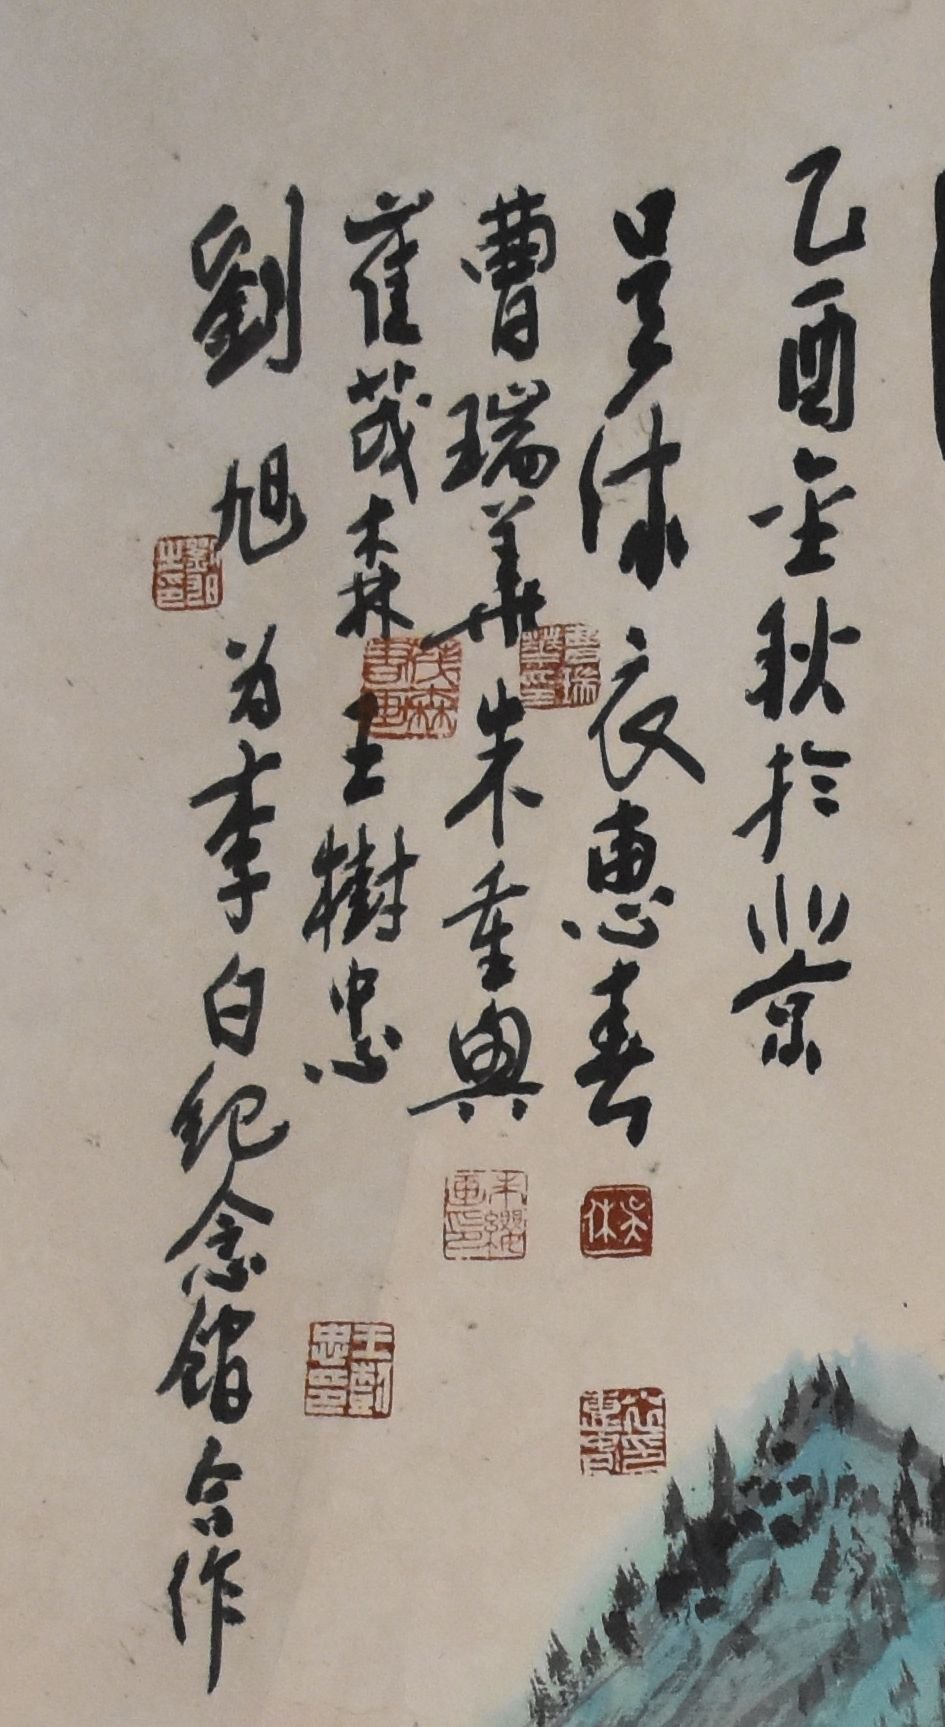 乙酉金秋於北京
吴休 衣惠春
曹瑞華 朱重興
崔茂森 王樹忠
劉旭 为李白纪念館合作